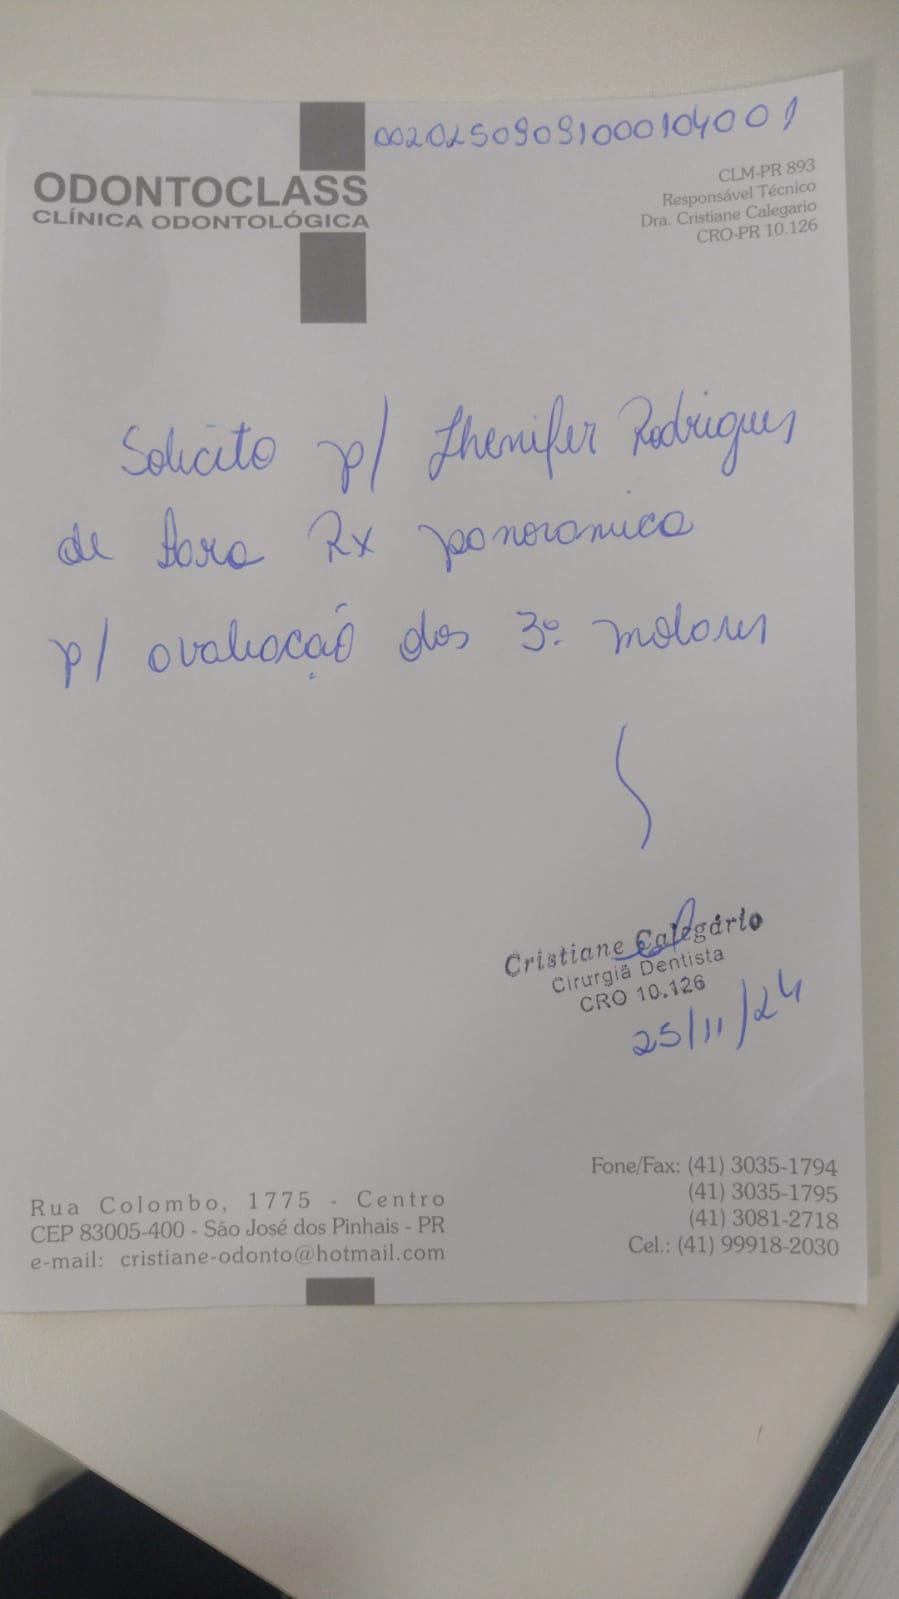 00202509091000104001
ODONTOCLASS
CLÍNICA ODONTOLÓGICA
CLM-PR 893
Responsável Técnico
Dra. Cristiane Calegario
CRO-PR 10.126
Solicito p/ Jhenifer Rodrigues
de Rx panoramica
p/ avaliação dos 3º molares
Cristiane Calegário
Cirurgiã Dentista
CRO 10.126
25/11/24
Fone/Fax: (41) 3035-1794
(41) 3035-1795
(41) 3081-2718
Cel.: (41) 99918-2030
Rua Colombo, 1775 - Centro
CEP 83005-400 - São José dos Pinhais - PR
e-mail: cristiane-odonto@hotmail.com